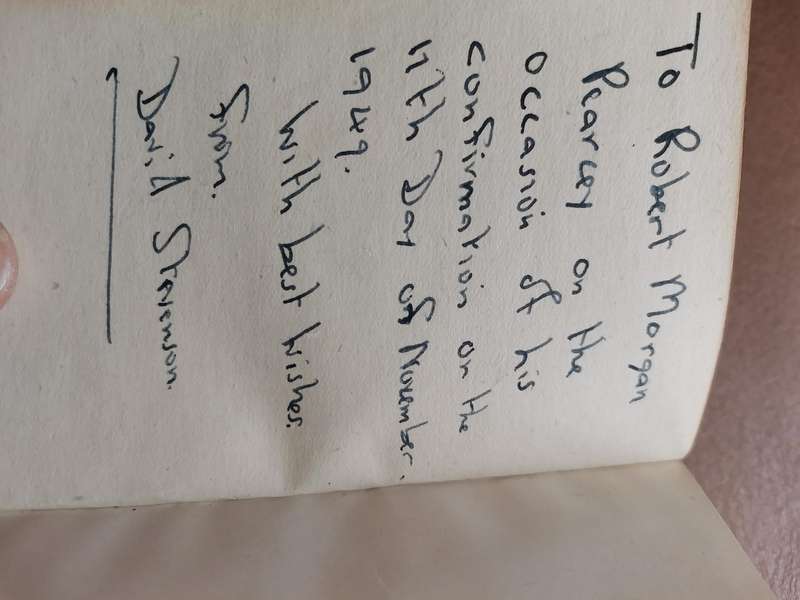 To Robert Morgan
Pearcey on the
occasion of his
confirmation on the
11th Day of November.
1949.
With best wishes.
from.
David Stevenson.